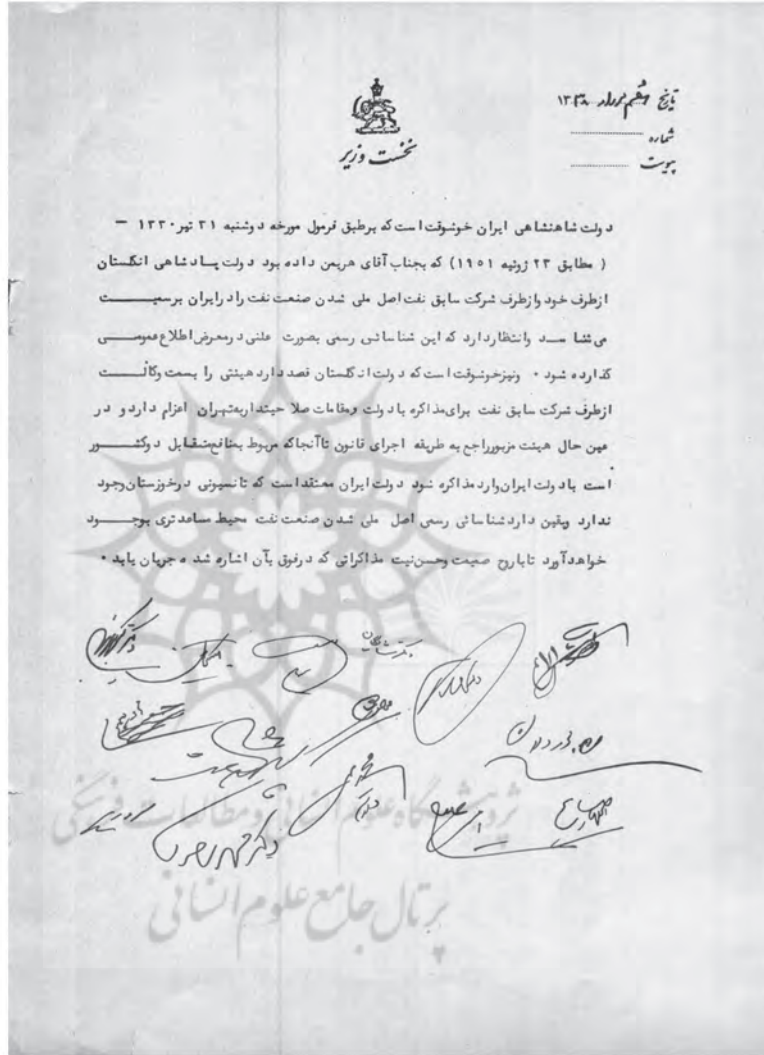 تاریخ
شماره
پیوست
نخست وزیر
دولت شاهنشاهی ایران خوشوقت است که برطبق فرمول مورخه دوشنبه ۳۱ تیر ۱۳۳۰ –
( مطابق ۲۳ ژوئیه ۱۹۵۱) که بجناب آقای هریمن داده بود دولت پادشاهی انگلستان
ازطرف خود وازطرف شرکت سابق نفت اصل ملی شدن صنعت نفت رادرایران برسمیت
می شناسد وانتظاردارد که این شناسائی رسمی بصورت علنی درمعرض اطلاع عمومی
گذارده شود ۰ ونیزخوشوقت است که دولت انگلستان قصد دارد هیئتی را بسمت وکالت
ازطرف شرکت سابق نفت برای مذاکره با دولت ومقامات صلاحیتدار بتهران اعزام دارد و در
عین حال هیئت مزبور راجع به طریقه اجرای قانون تاآنجاکه مربوط بمنافع متقابل دوکشور
است با دولت ایران وارد مذاکره شود دولت ایران معتقد است که تانسیونی درخوزستان وجود
ندارد ویقین دارد شناسائی رسمی اصل ملی شدن صنعت نفت محیط مساعدتری بوجود
خواهد آورد تا باروح صمیمت وحسن نیت مذاکراتی که درفوق بآن اشاره شده جریان یابد ۰
پژوهشگاه علوم انسانی و مطالعات فرهنگی
پرتال جامع علوم انسانی